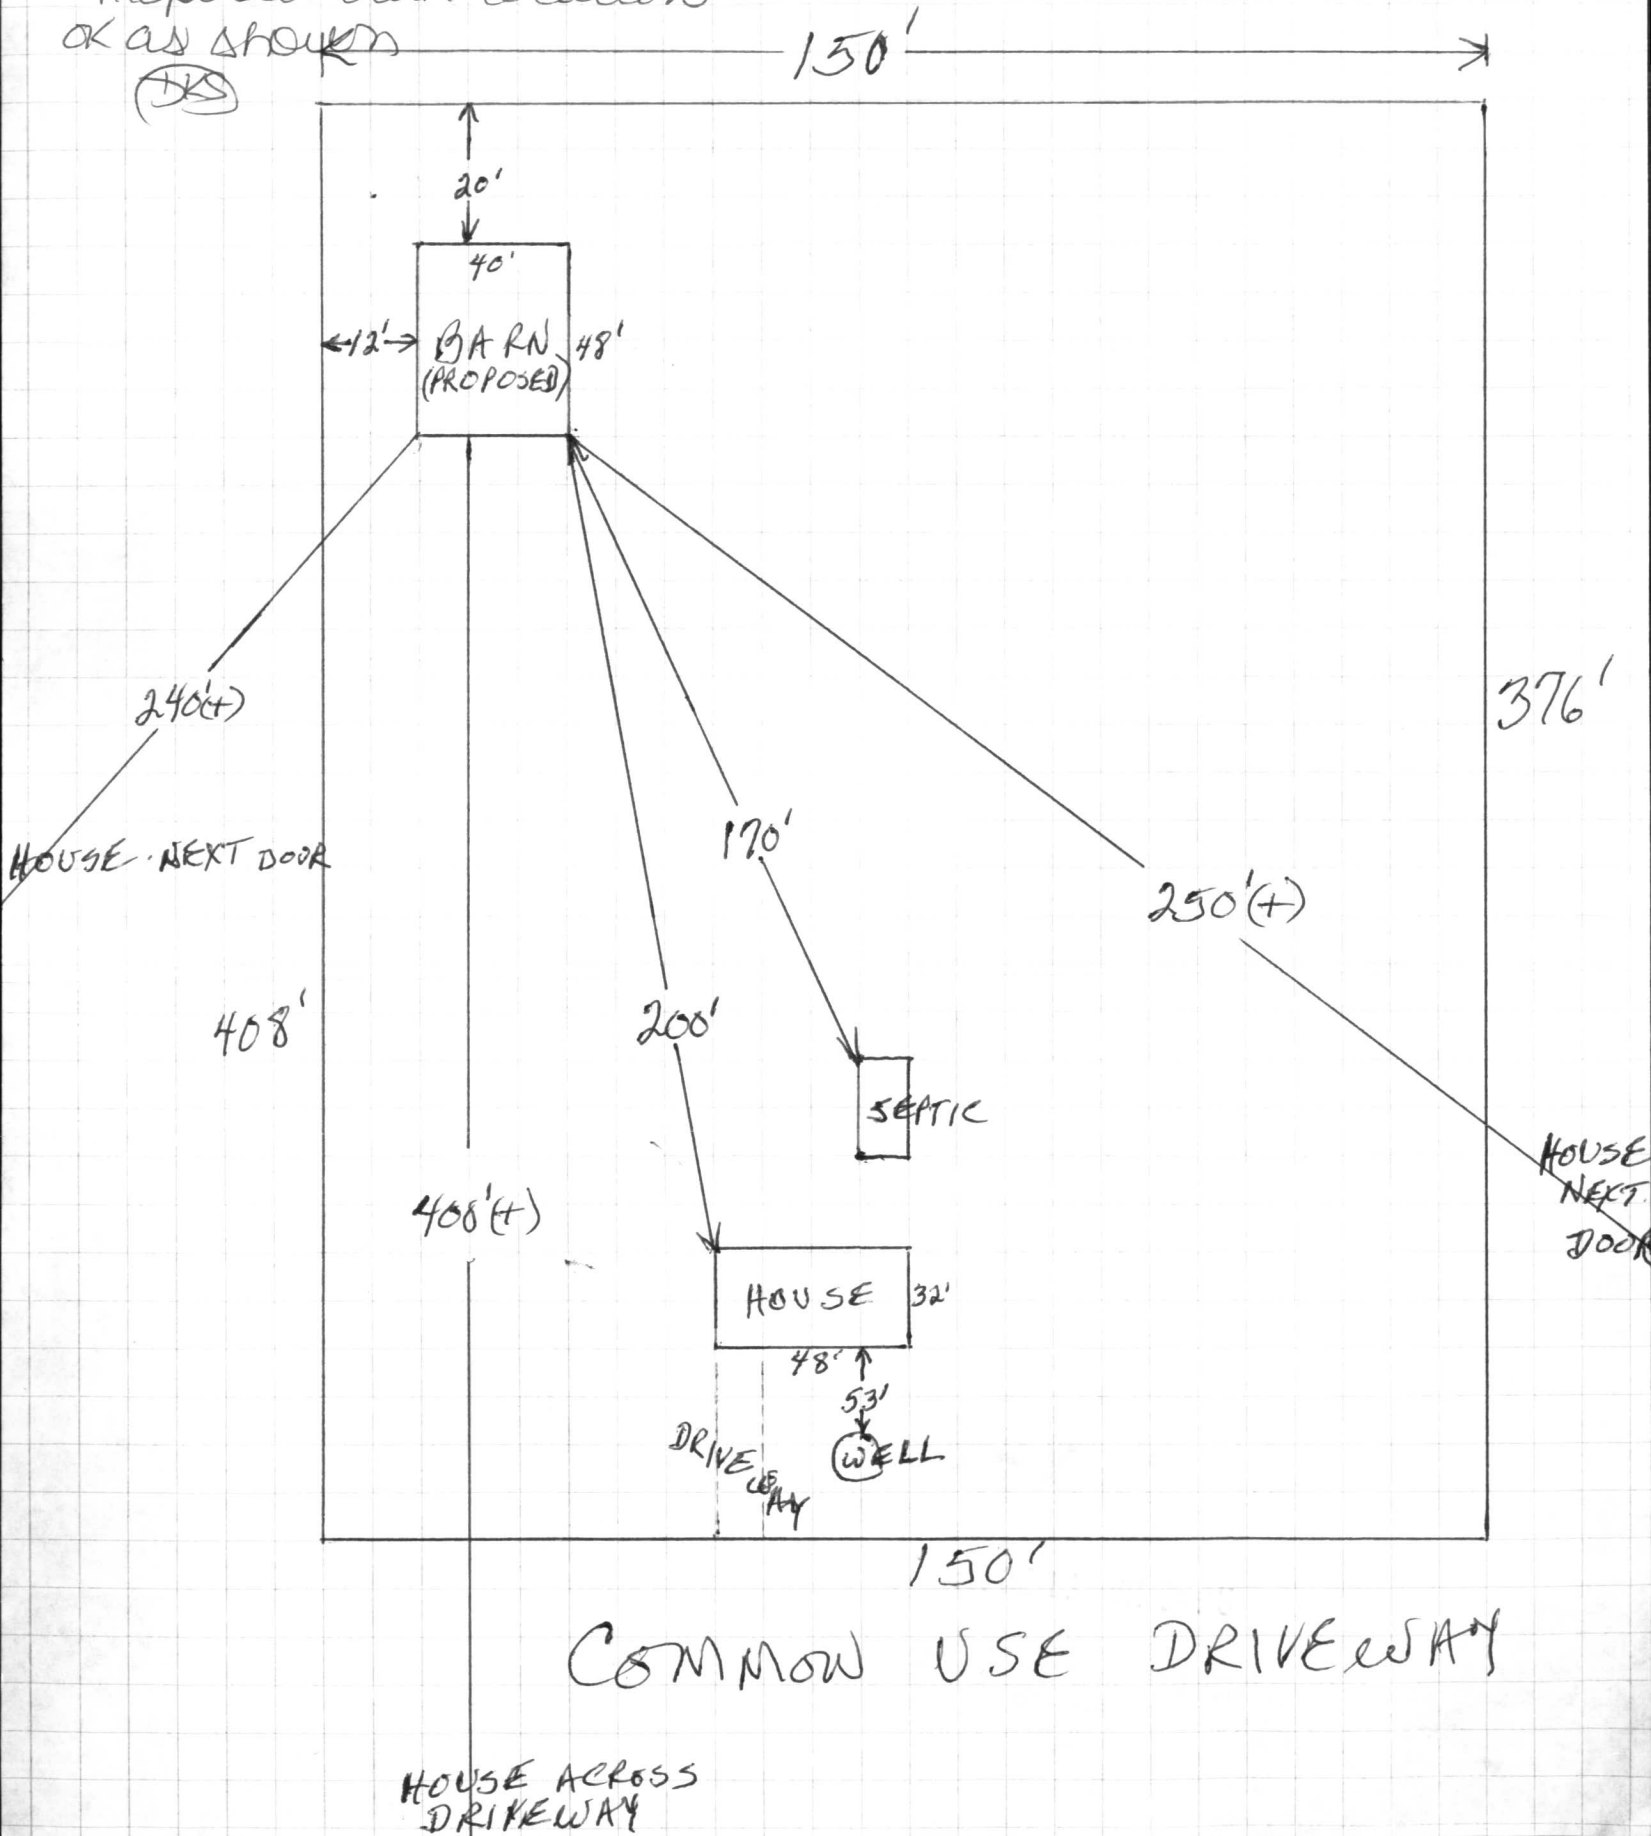 Proposed barn location
OK as shown
DKS
150'
20'
40'
12'
BARN
48'
(PROPOSED)
240'(+)
376'
170'
HOUSE NEXT DOOR
250'(+)
408'
200'
SEPTIC
HOUSE
NEXT
DOOR
400'(+)
HOUSE
32'
48'
53'
DRIVEWAY
WELL
150'
COMMON USE DRIVEWAY
HOUSE ACROSS
DRIVEWAY